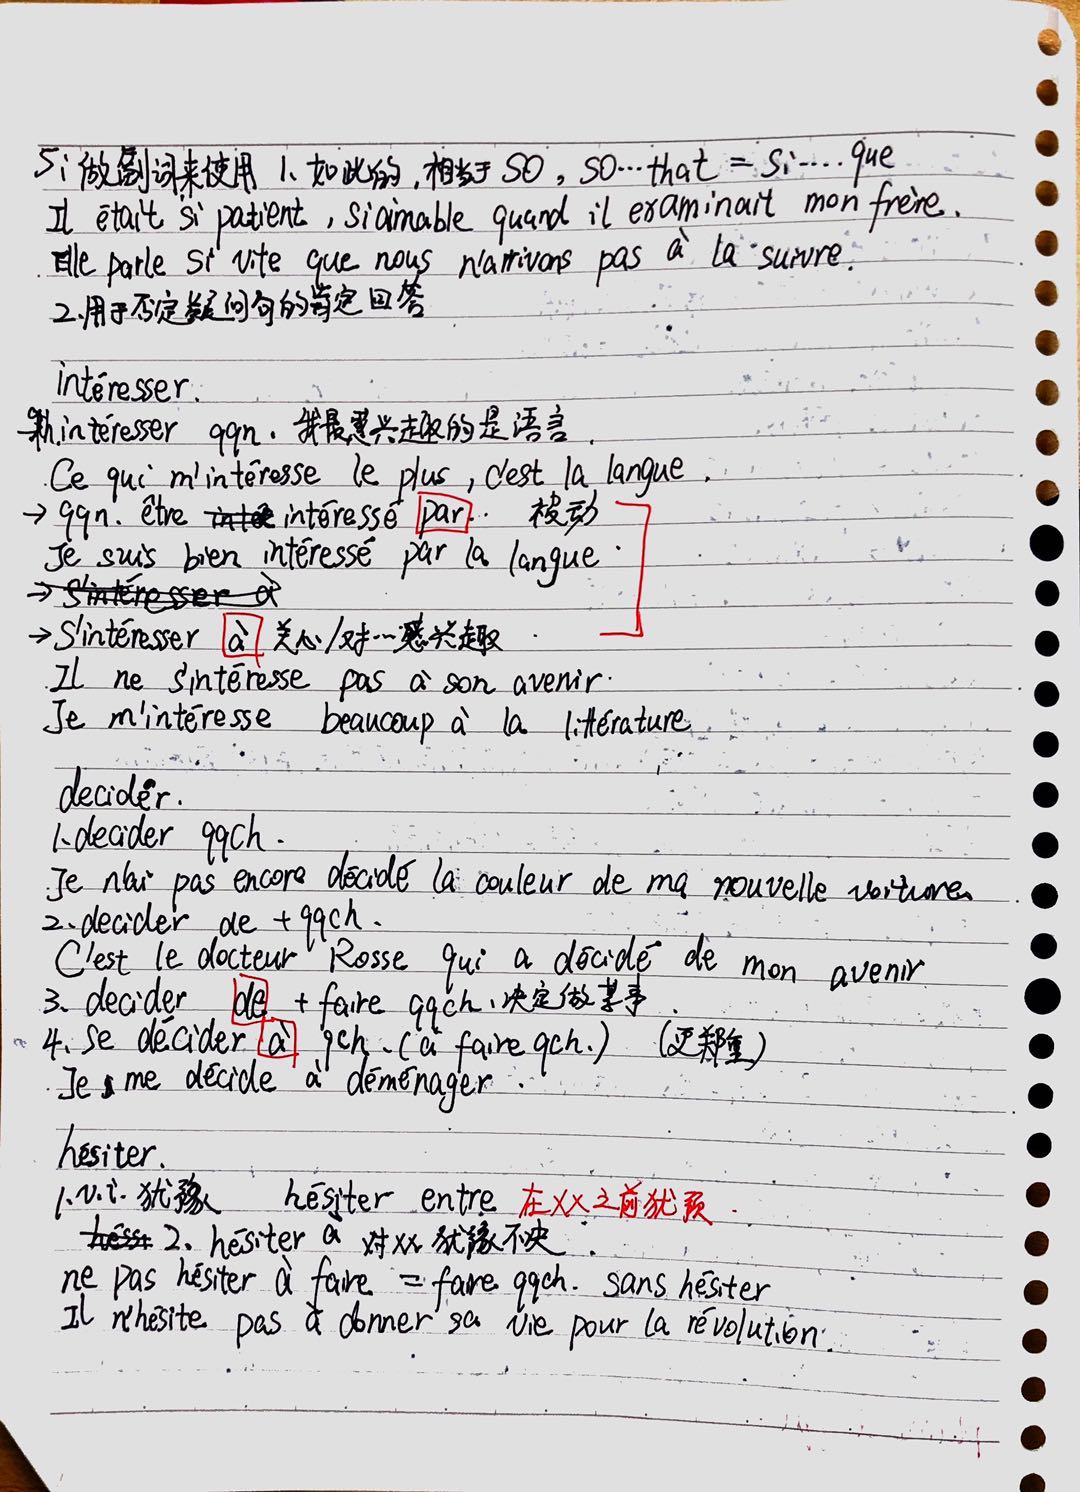 Si 做副词来使用 1. 如此的,相当于 so, so...that = si....que
Il était si patient, si aimable quand il examinait mon frère.
Elle parle si vite que nous n'arrivons pas à la suivre.
2.用于否定疑问句的肯定回答
intéresser.
intéresser qqn. 我最感兴趣的是语言.
Ce qui m'intéresse le plus, c'est la langue.
→ qqn. être intéressé par.. 被动
Je suis bien intéressé par la langue.
→ S'intéresser à
→ S'intéresser à 关心/对...感兴趣
Il ne s'intéresse pas à son avenir.
Je m'intéresse beaucoup à la littérature
decider.
1. decider qqch.
Je n'ai pas encore décidé la couleur de ma nouvelle voiture.
2. decider de + qqch.
C'est le docteur Rosse qui a décidé de mon avenir
3. decider de + faire qqch. 决定做某事.
4. se décider à qch. (à faire qch.) (更郑重)
Je me décide à déménager.
hésiter.
1. v.i. 犹豫 hésiter entre 在XX之前犹预.
2. hésiter à 对xx 犹豫不决.
ne pas hésiter à faire = faire qqch. sans hésiter
Il n'hésite pas à donner sa vie pour la révolution.